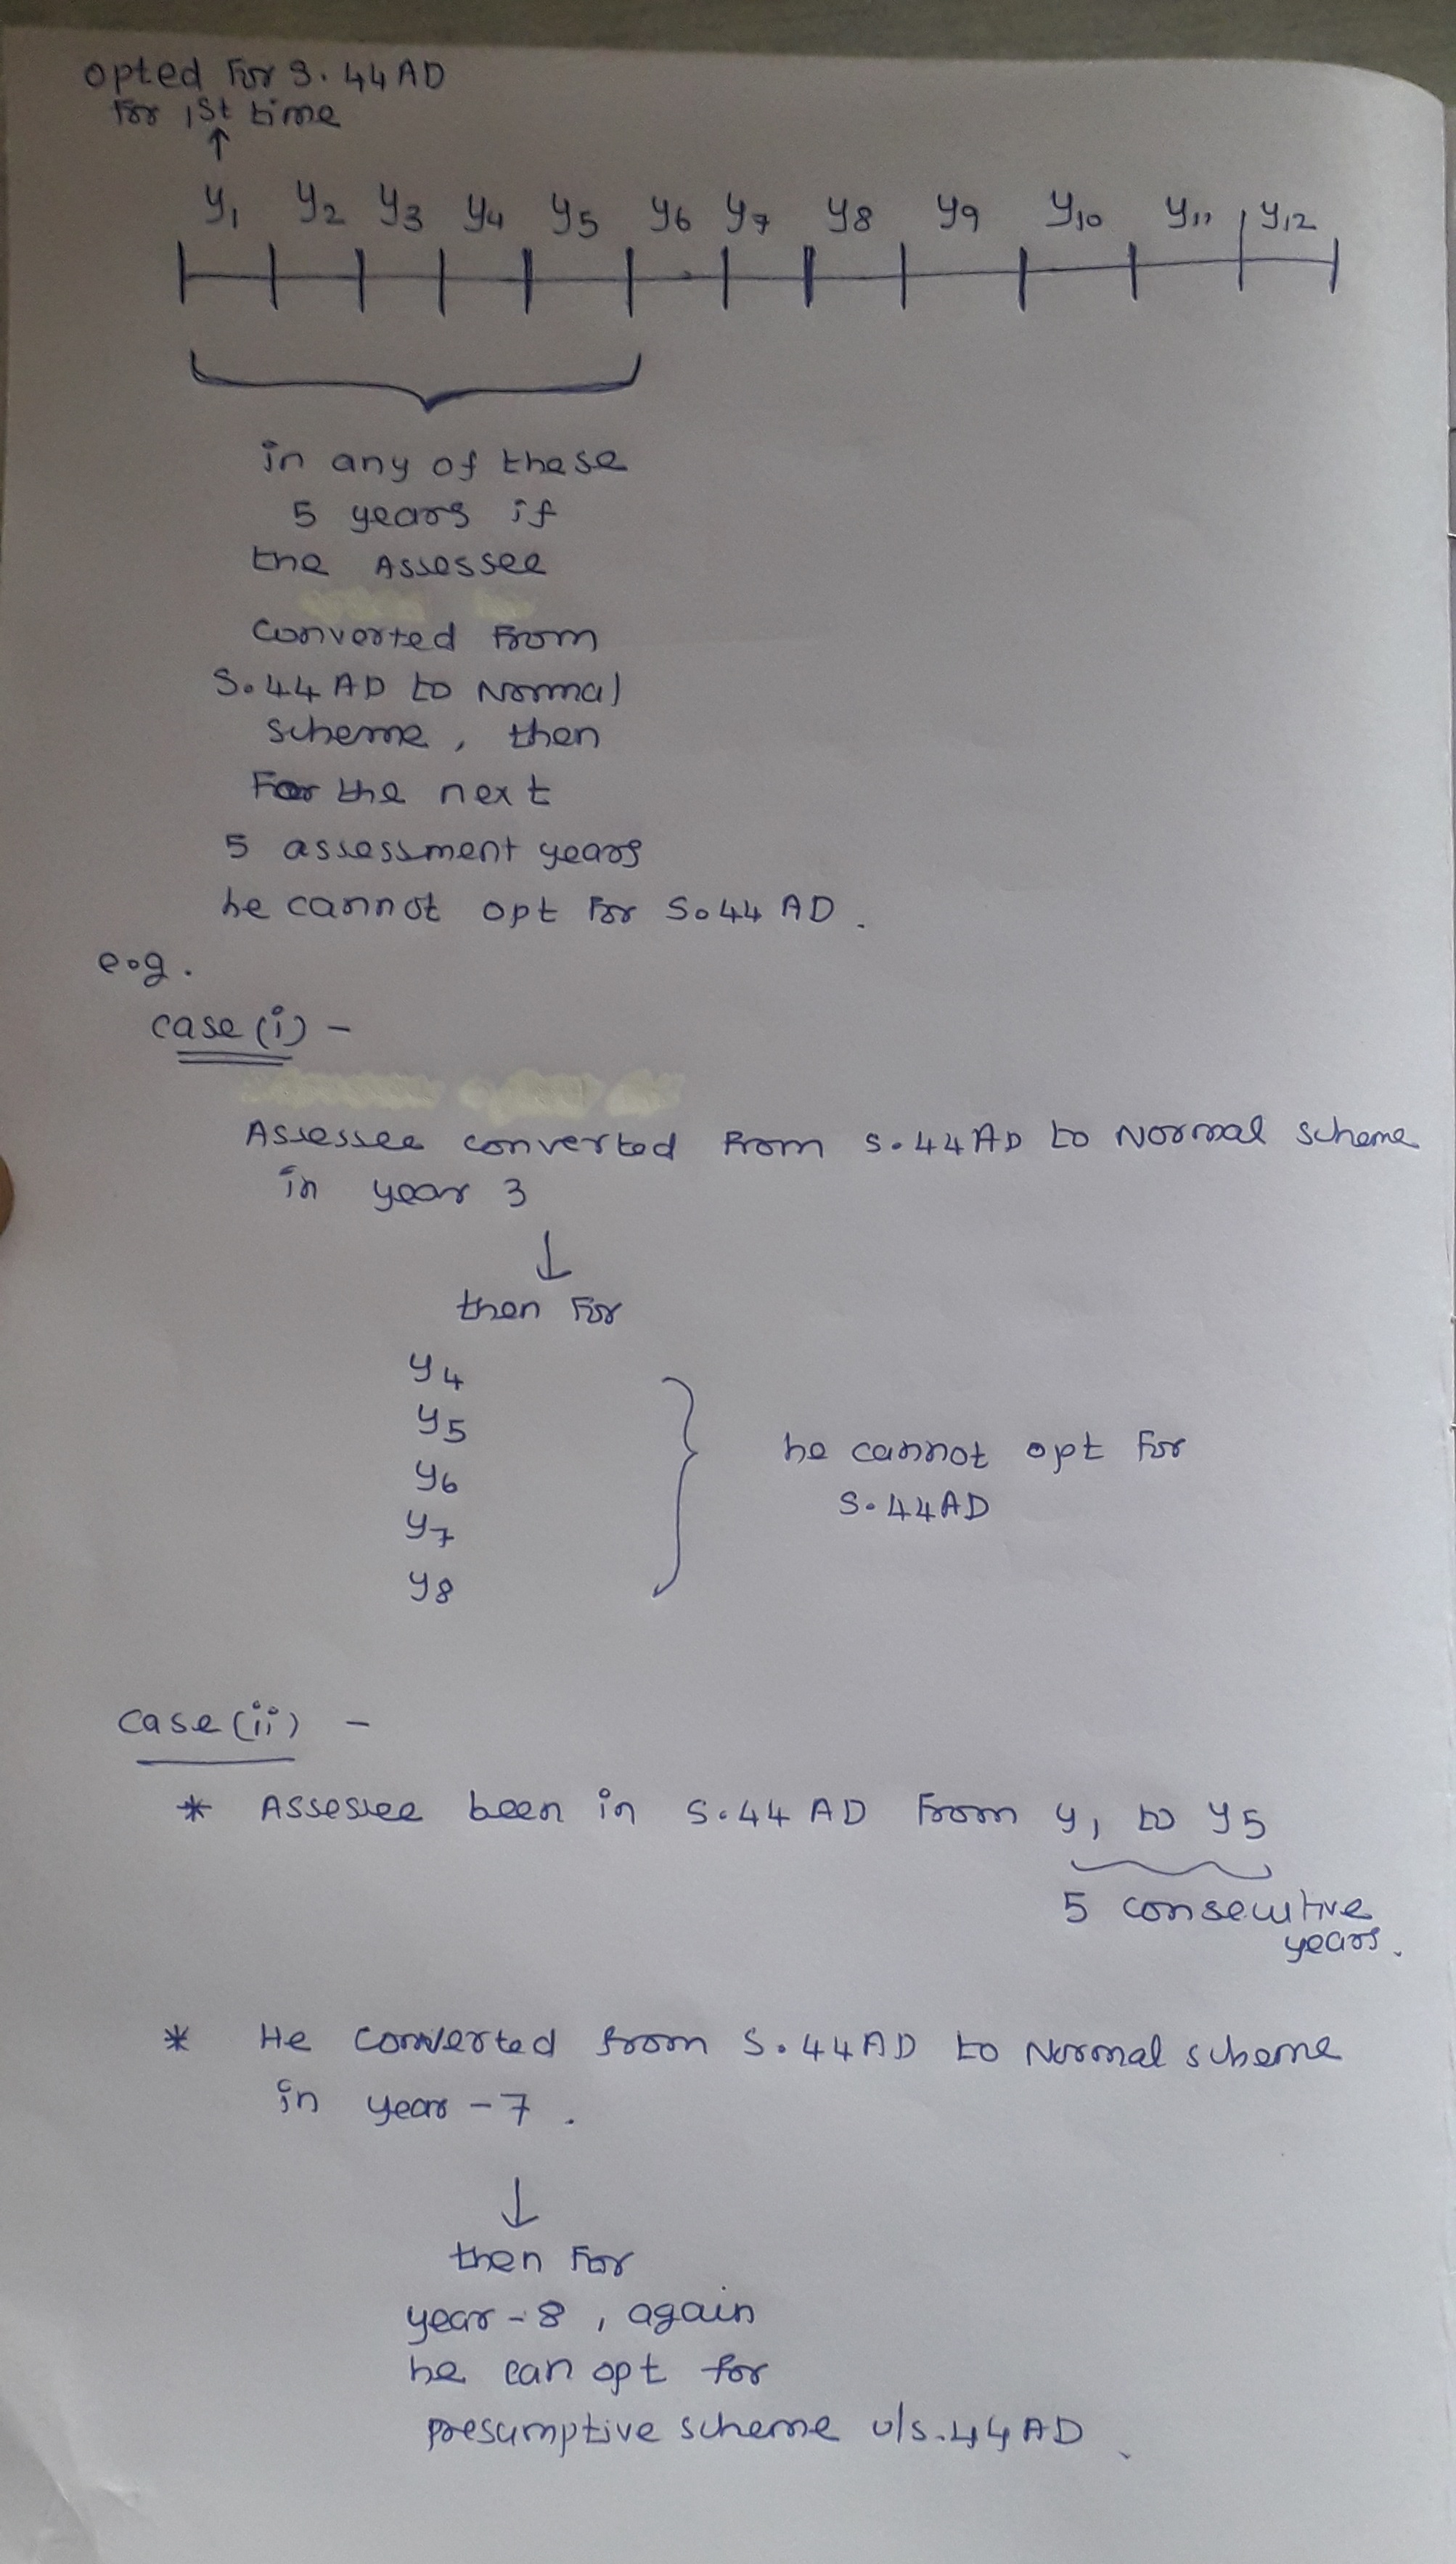 opted For S. 44AD
For 1st time
↑
y1 y2 y3 y4 y5 y6 y7 y8 y9 y10 y11 y12
in any of these
5 years if
the Assessee
converted From
S.44 AD to Normal
scheme, then
For the next
5 assessment years
he cannot opt For S.44 AD.
e.g.
case (i) -
Assessee converted From S.44AD to Normal scheme
in year 3
↓
then For
y4
y5
y6
y7
y8
he cannot opt For
S.44AD
case (ii) -
* Assessee been in S.44 AD From y1 to y5
5 consecutive
years.
* He converted from S.44AD to Normal scheme
in year - 7.
↓
then For
year - 8, again
he can opt for
presumptive scheme u/s.44AD.